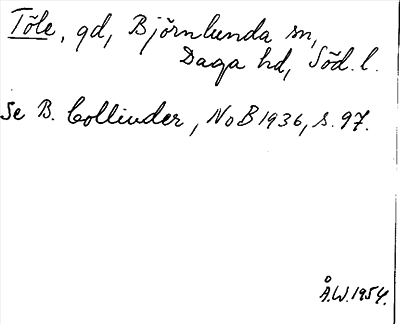 Töle, gd, Björnlunda sn,
Daga hd, Söd. l.
Se B. Collinder, NoB 1936, s. 97.
Å.W. 1954.